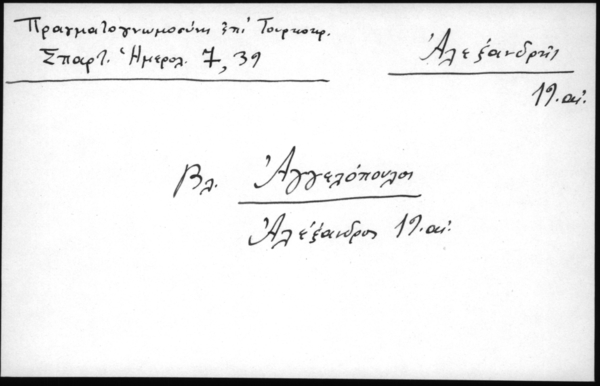 Πραγματογνωμοσύνη ἐπὶ Τουρκοκρ.
Σπαρτ. Ἡμερολ. 7, 39
Ἀλεξανδρῆς
19. αἰ.
Βλ. Ἀγγελόπουλοι
Ἀλέξανδρος 19. αἰ.